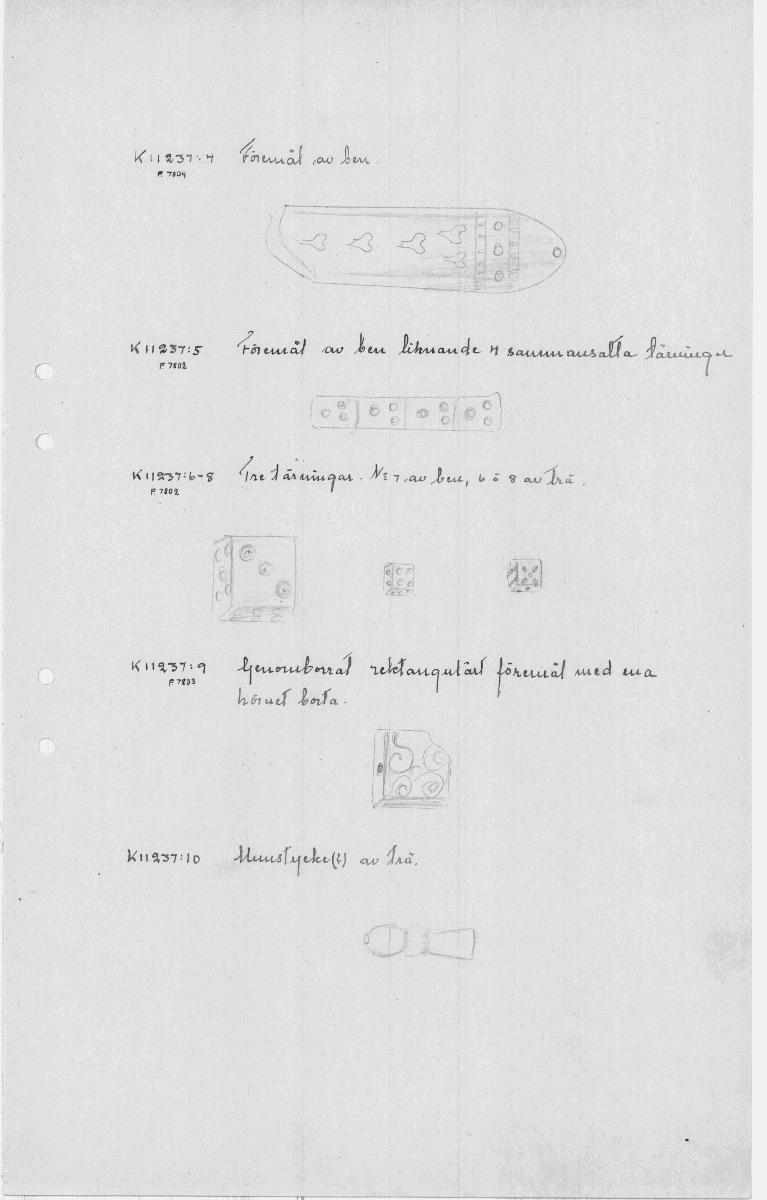 K11237:4 Föremål av ben.
F. 7804
K11237:5 Föremål av ben liknande 4 sammansatta tärningar
F. 7802
K11237:6-8 Tre tärningar. No 7 av ben, 6 o 8 av trä.
F. 7802
K11237:9 Genomborrat rektangulärt föremål med ena
F. 7803
hörnet borta.
K11237:10 Munstycke(?) av trä.